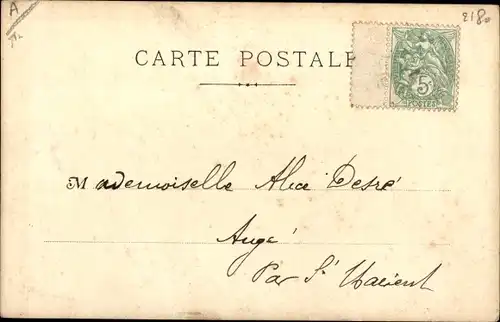 A
2180
CARTE POSTALE
5
POSTES
Mademoiselle Alice Desré
Augé
Par St Maixent